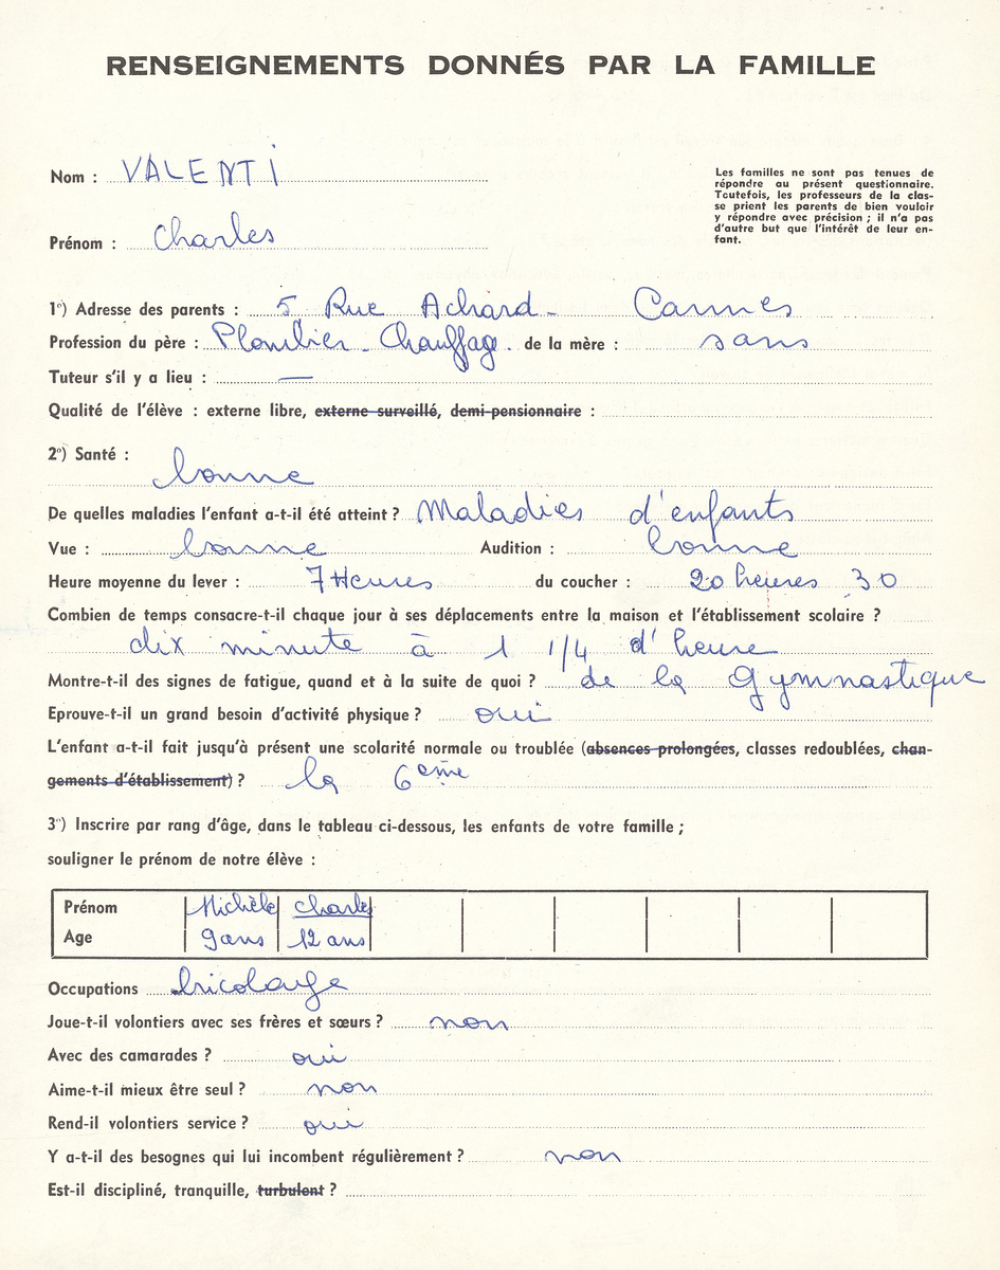 RENSEIGNEMENTS DONNÉS PAR LA FAMILLE
Nom : VALENTI
Les familles ne sont pas tenues de
répondre au présent questionnaire.
Toutefois, les professeurs de la clas-
se prient les parents de bien vouloir
y répondre avec précision ; il n'a pas
d'autre but que l'intérêt de leur en-
fant.
Prénom : Charles
1°) Adresse des parents : 5 Rue Achard - Cannes
Profession du père : Plombier - Chauffage. de la mère : sans
Tuteur s'il y a lieu : —
Qualité de l'élève : externe libre, externe surveillé, demi-pensionnaire :
2°) Santé :
bonne
De quelles maladies l'enfant a-t-il été atteint ? Maladies d'enfants
Vue : bonne Audition : bonne
Heure moyenne du lever : 7 Heures du coucher : 20 heures 30
Combien de temps consacre-t-il chaque jour à ses déplacements entre la maison et l'établissement scolaire ?
dix minute à 1 1/4 d'heure
Montre-t-il des signes de fatigue, quand et à la suite de quoi ? de la Gymnastique
Eprouve-t-il un grand besoin d'activité physique ? oui
L'enfant a-t-il fait jusqu'à présent une scolarité normale ou troublée (absences prolongées, classes redoublées, chan-
gements d'établissement) ? la 6eme
3°) Inscrire par rang d'âge, dans le tableau ci-dessous, les enfants de votre famille ;
souligner le prénom de notre élève :
Prénom Michèle Charles
Age 9 ans 12 ans
Occupations bricolage
Joue-t-il volontiers avec ses frères et sœurs ? non
Avec des camarades ? oui
Aime-t-il mieux être seul ? non
Rend-il volontiers service ? oui
Y a-t-il des besognes qui lui incombent régulièrement ? non
Est-il discipliné, tranquille, turbulent ?